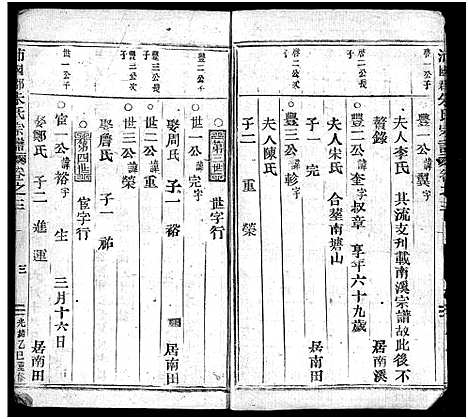 豐一公諱翼字
夫人李氏 其流支刋載南溪宗譜故此後不
贅錄 居南溪
啓二公長子
○豐二公諱奎字叔章 享年六十九歲
夫人宋氏 合葬南塘山
子一 完
啓二公次子
○豐三公諱軫字
夫人陳氏
子二 重 榮
第三世 世字行
豐二公子
○世一公諱完字
娶周氏 子一 裕 居南田
豐三公長子
○世二公諱重
娶詹氏 子一 祐
豐三公次子
○世三公諱榮
第四世 宦字行
世一公子
○宦一公諱裕字 生 三月十六日
娶鄒氏 子二 進 運 居南田
沛國郡朱氏宗譜 卷之三 三 光緒乙巳重修